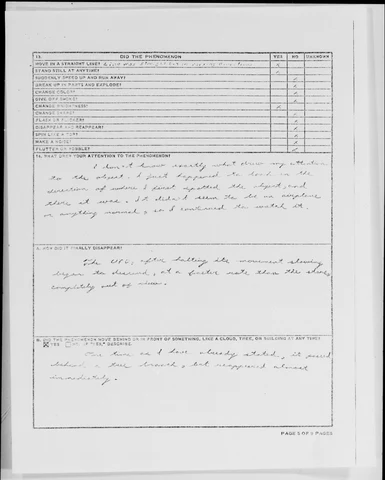 13. DID THE PHENOMENON YES NO UNKNOWN
MOVE IN A STRAIGHT LINE? x
STAND STILL AT ANYTIME? x
SUDDENLY SPEED UP AND RUN AWAY? x
BREAK UP IN PARTS AND EXPLODE? x
CHANGE COLOR? x
GIVE OFF SMOKE? x
CHANGE BRIGHTNESS? x
CHANGE SHAPE? x
FLASH OR FLICKER? x
DISAPPEAR AND REAPPEAR? x
SPIN LIKE A TOP? x
MAKE A NOISE? x
FLUTTER OR WOBBLE? x
WHAT DREW YOUR ATTENTION TO THE PHENOMENON?
I don't know exactly what drew my attention
to the object. I just happened to look in the
direction of where I first spotted the object, and
there it was. It didn't seem to be an airplane
or anything normal, so I continued to watch it.
A. HOW DID IT FINALLY DISAPPEAR?
The UFO, after halting its movement
began to descend, at a faster rate than the
completely out of view.
B. DID THE PHENOMENON MOVE BEHIND OR IN FRONT OF SOMETHING, LIKE A CLOUD, TREE, OR BUILDING AT ANY TIME?
X YES NO IF "YES," DESCRIBE.
One time as I have already stated, it passed
behind a tree branch, but reappeared almost
immediately.
PAGE 5 OF 5 PAGES